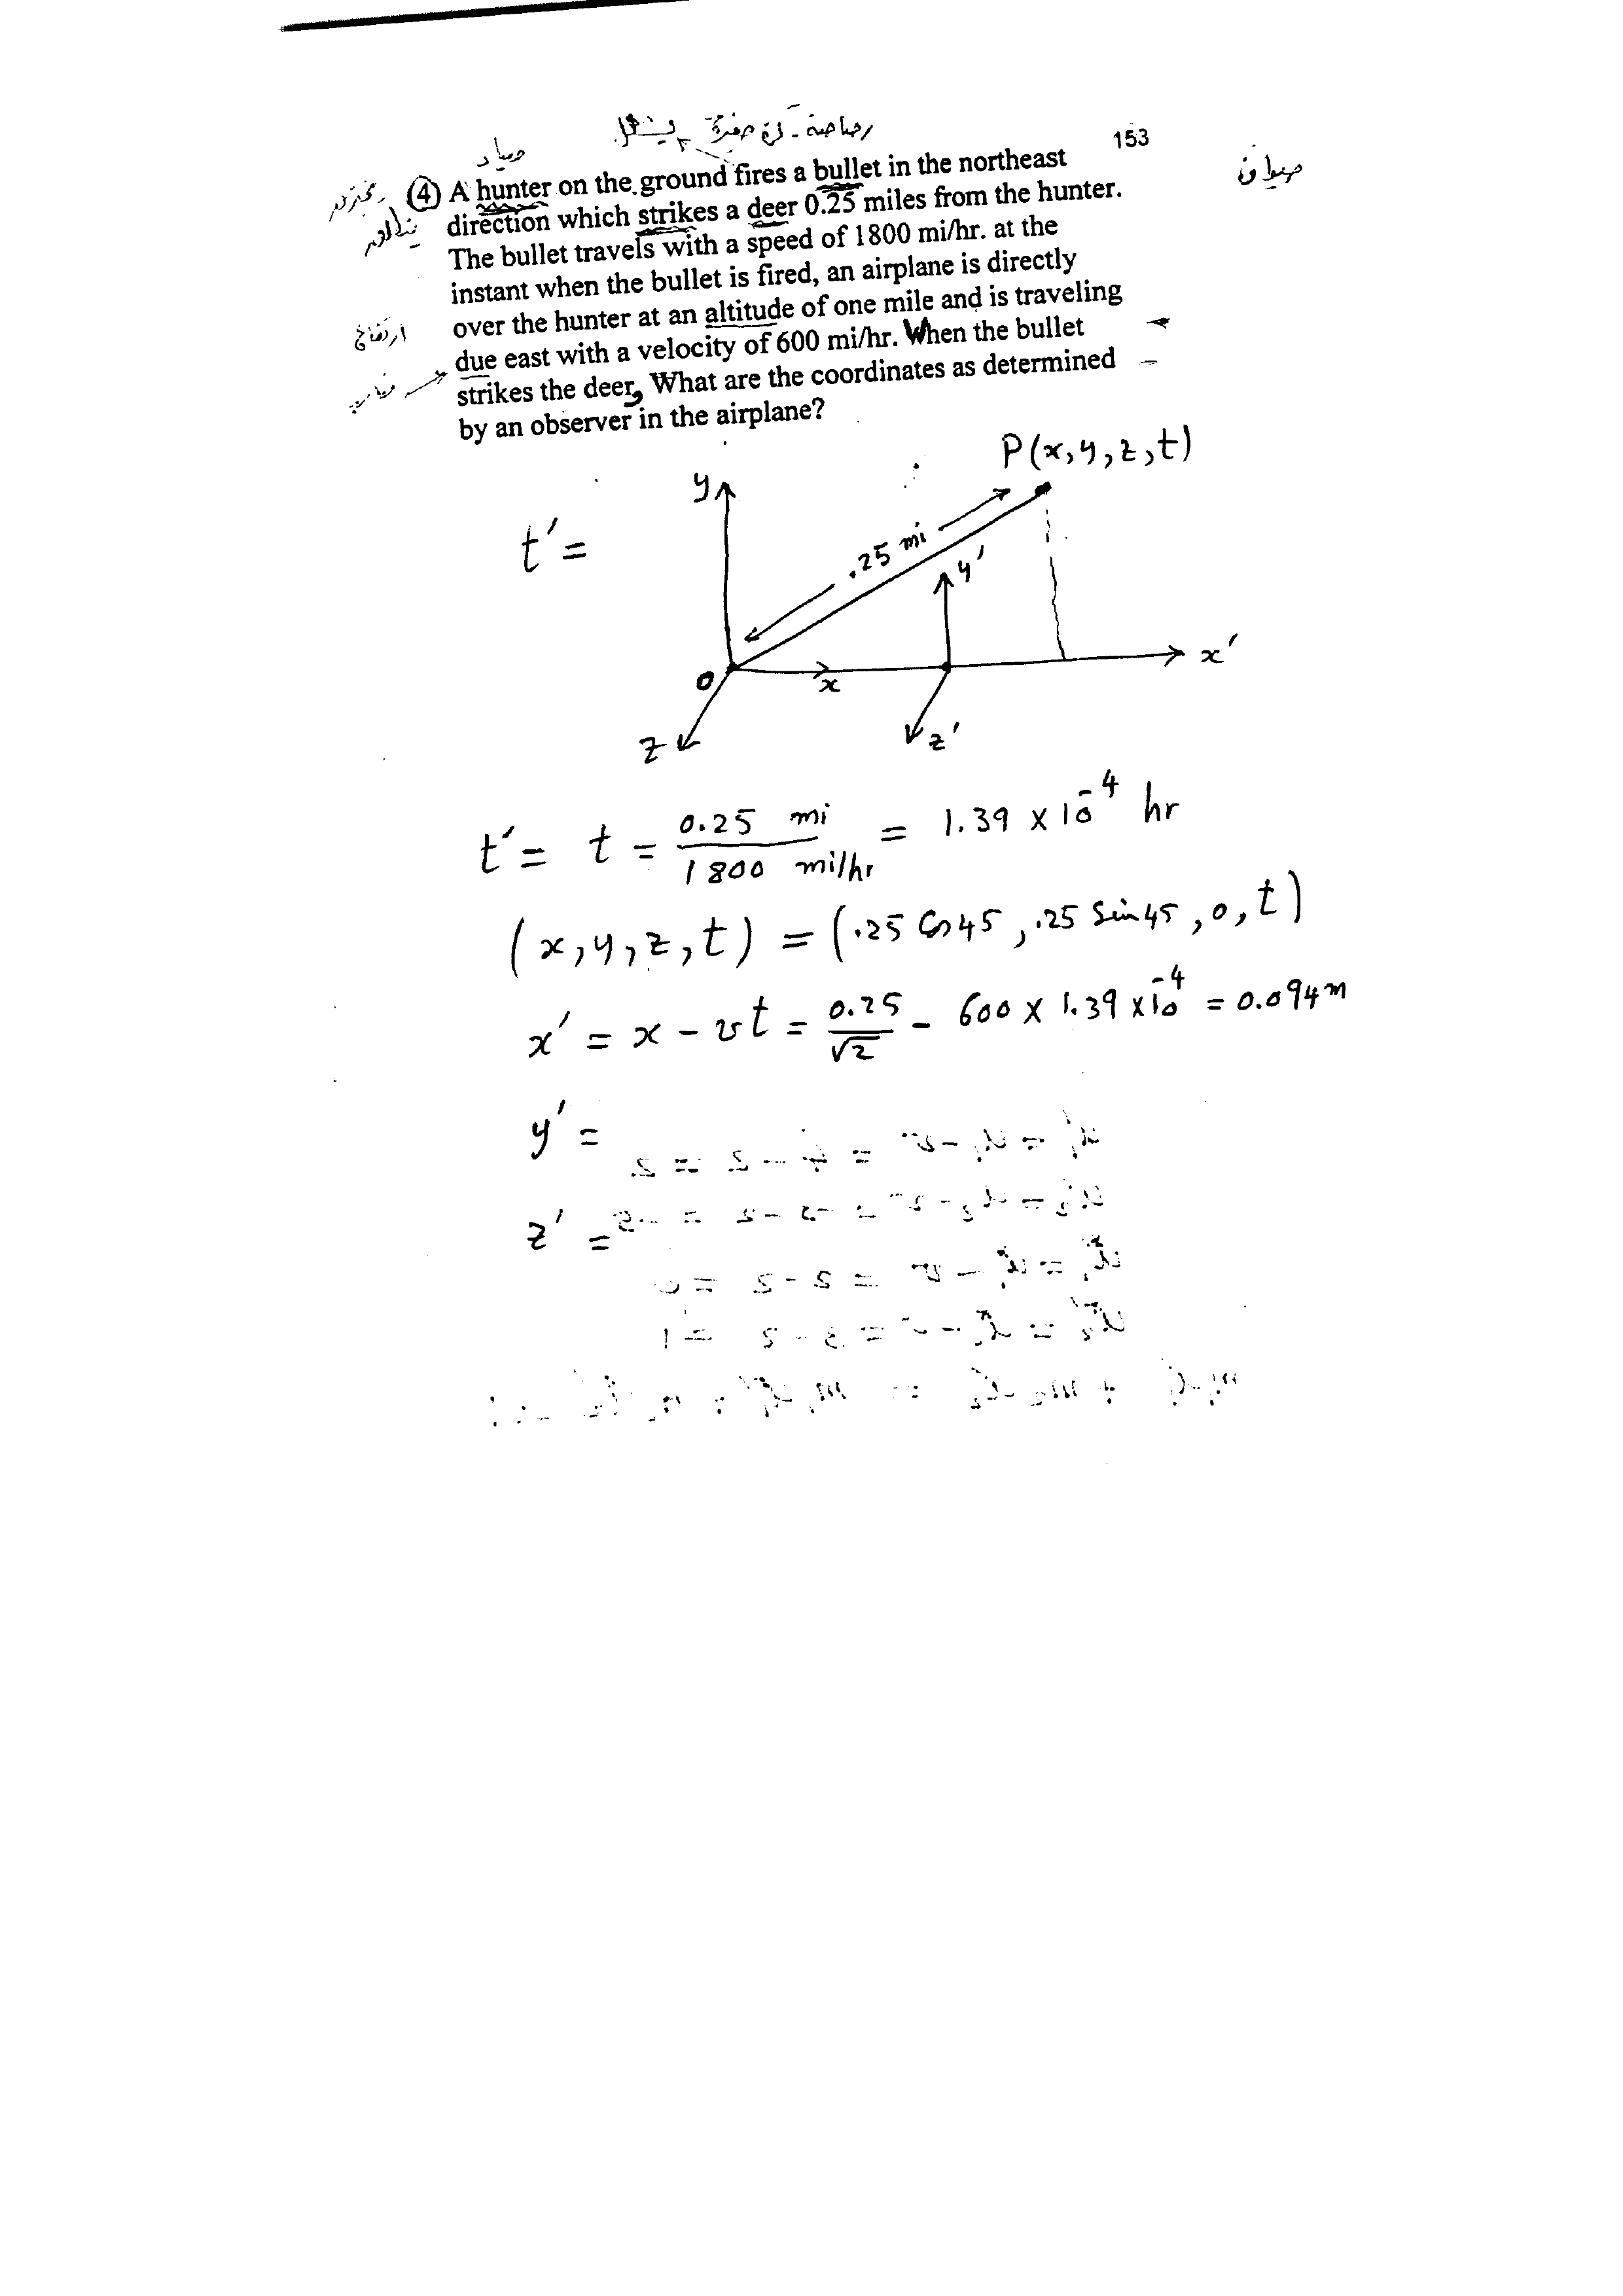 153
صياد
رصاصة - كرة صغيرة
حيوان
④ A hunter on the ground fires a bullet in the northeast
direction which strikes a deer 0.25 miles from the hunter.
The bullet travels with a speed of 1800 mi/hr. at the
instant when the bullet is fired, an airplane is directly
over the hunter at an altitude of one mile and is traveling
ارتفاع
due east with a velocity of 600 mi/hr. When the bullet
strikes the deer, What are the coordinates as determined
by an observer in the airplane?
P(x,y,z,t)
y
t' =
.25 mi
y'
x'
O
x
z
z'
t' = t = 0.25 mi / 1800 mi/hr = 1.39 x 10^-4 hr
(x,y,z,t) = (.25 Cos45, .25 Sin45, 0, t)
x' = x - vt = 0.25/√2 - 600 x 1.39 x 10^-4 = 0.094 m
y' =
z' =